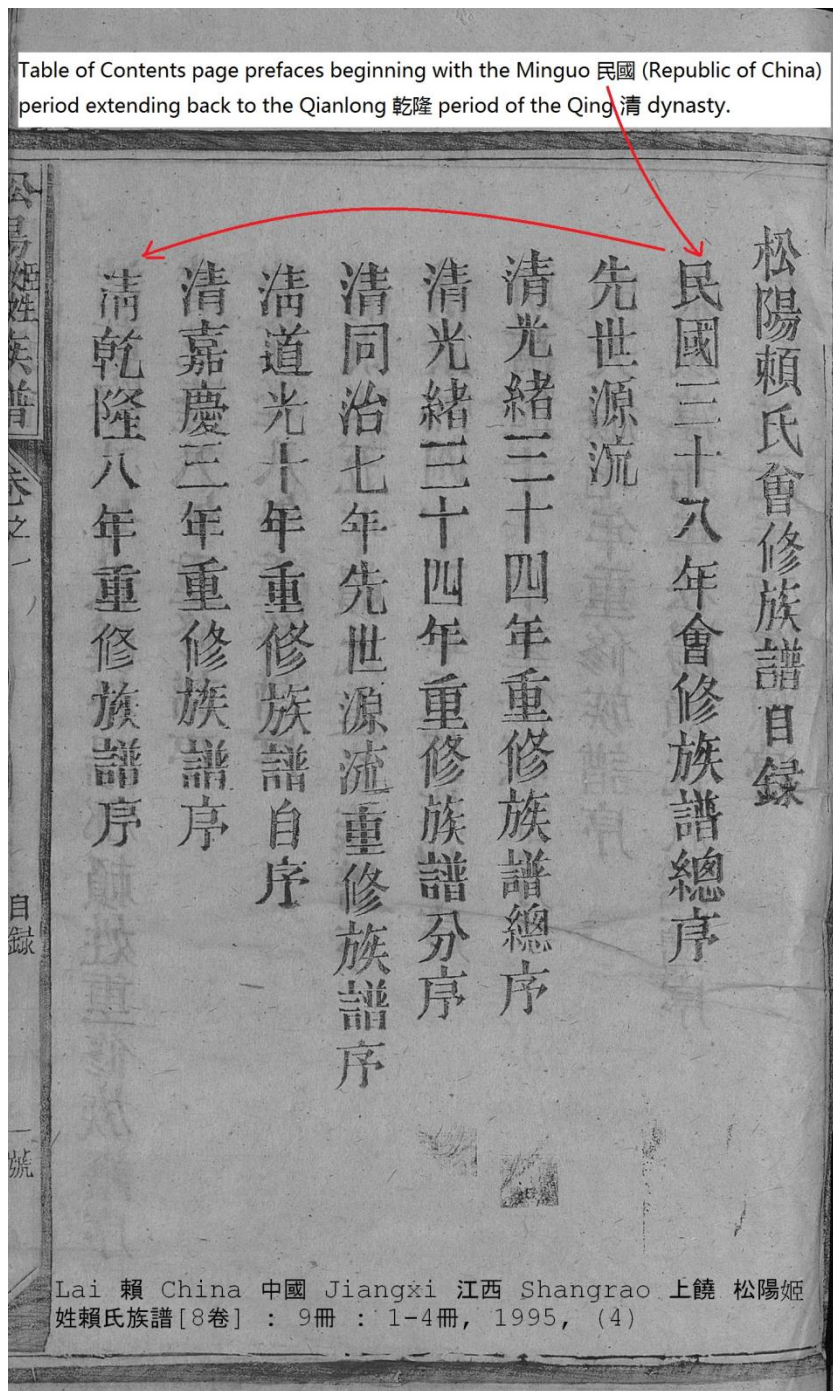 Table of Contents page prefaces beginning with the Minguo 民國 (Republic of China)
period extending back to the Qianlong 乾隆 period of the Qing 清 dynasty.
松陽賴氏會修族譜目録
民國三十八年會修族譜總序
先世源流
清光緒三十四年重修族譜總序
清光緒三十四年重修族譜分序
清同治七年先世源流重修族譜序
清道光十年重修族譜自序
清嘉慶三年重修族譜序
清乾隆八年重修族譜序
松陽姬姓族譜
卷之一
目録
一號
Lai 賴 China 中國 Jiangxi 江西 Shangrao 上饒 松陽姬
姓賴氏族譜[8卷] : 9冊 : 1-4冊, 1995, (4)